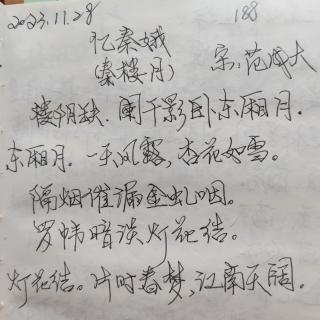 2023.11.28
188
忆秦娥
(秦楼月)
宋:范成大
楼阴缺.阑干影卧东厢月.
东厢月.一天风露,杏花如雪。
隔烟催漏金虬咽。
罗帏暗淡灯花结。
灯花结。片时春梦,江南天阔.